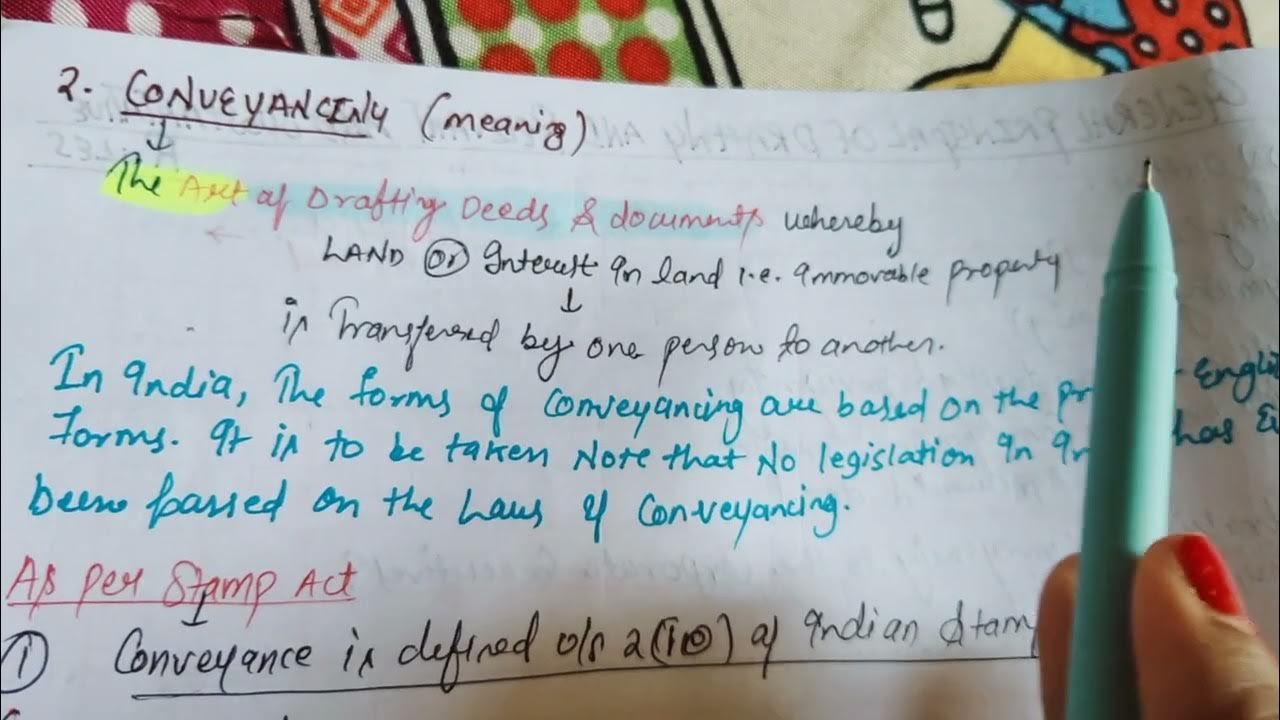 2. CONVEYANCING (meaning)
The Art of Drafting Deeds & documents whereby
LAND or Interest In land i.e. Immovable property
is Transferred by one person to another.
In India, The forms of Conveyancing are based on the Engli
forms. It is to be taken Note that No legislation In has
been passed on the Laws of Conveyancing.
As per Stamp Act
① Conveyance is defined u/s 2(10) of Indian Stam